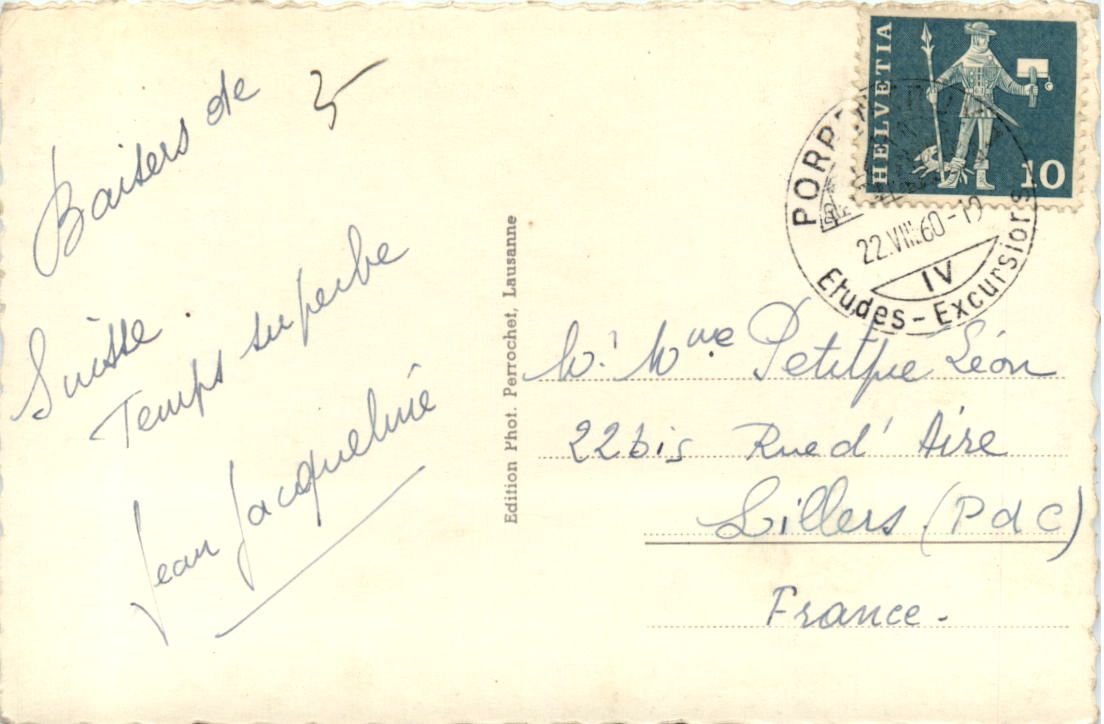 Baisers de
Suisse.
Temps superbe
Jean Jacqueline
Edition Phot. Perrochet, Lausanne
HELVETIA
10
22.VIII.60-19
IV
Etudes - Excursions
M. Mme Petitpré Léon
22bis Rue d' Aire
Lillers (P d C)
France.